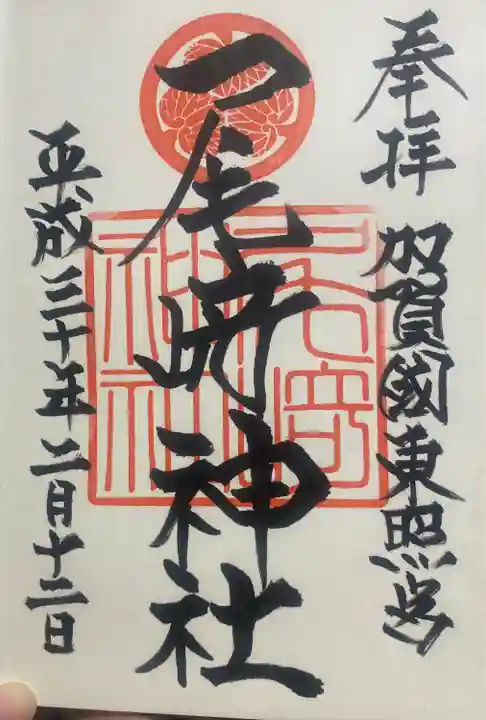 奉拝 加賀國東照宮
尾﨑神社
平成三十年二月十三日
尾崎神社